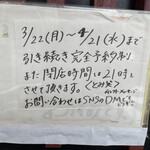 3/22(月)〜4/21(水)まで
引き続き完全予約制
また閉店時間は21時と
させて頂きます。
お問い合わせはSNSのDMまで